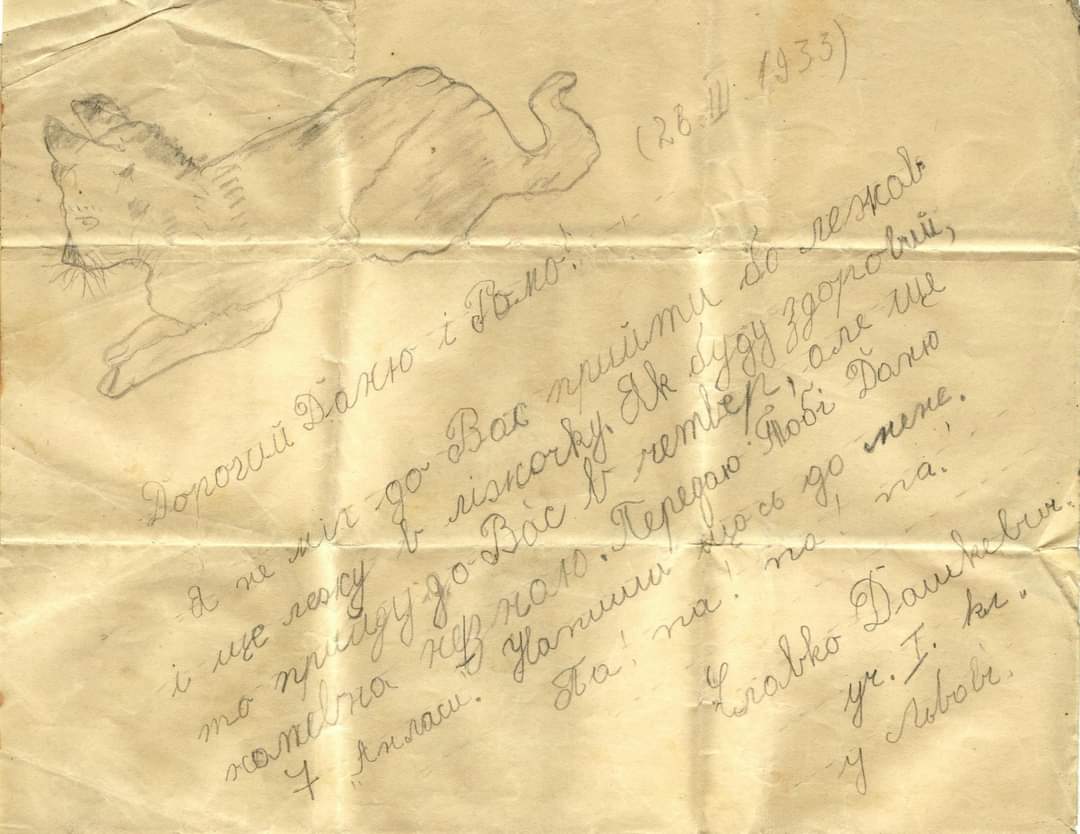 (28.III 1933)
Дорогий Даню і Ромо!
Я не міг до Вас прийти бо лежав
і ще лежу в ліжочку. Як буду здоровий,
то прийду до Вас в четвер, але ще
напевна не знаю. Передаю Тобі Даню
7 Напиши щось до мене.
Па! па! па! па!
Славко Дашкевич.
уч. I. кл.
у Львові.